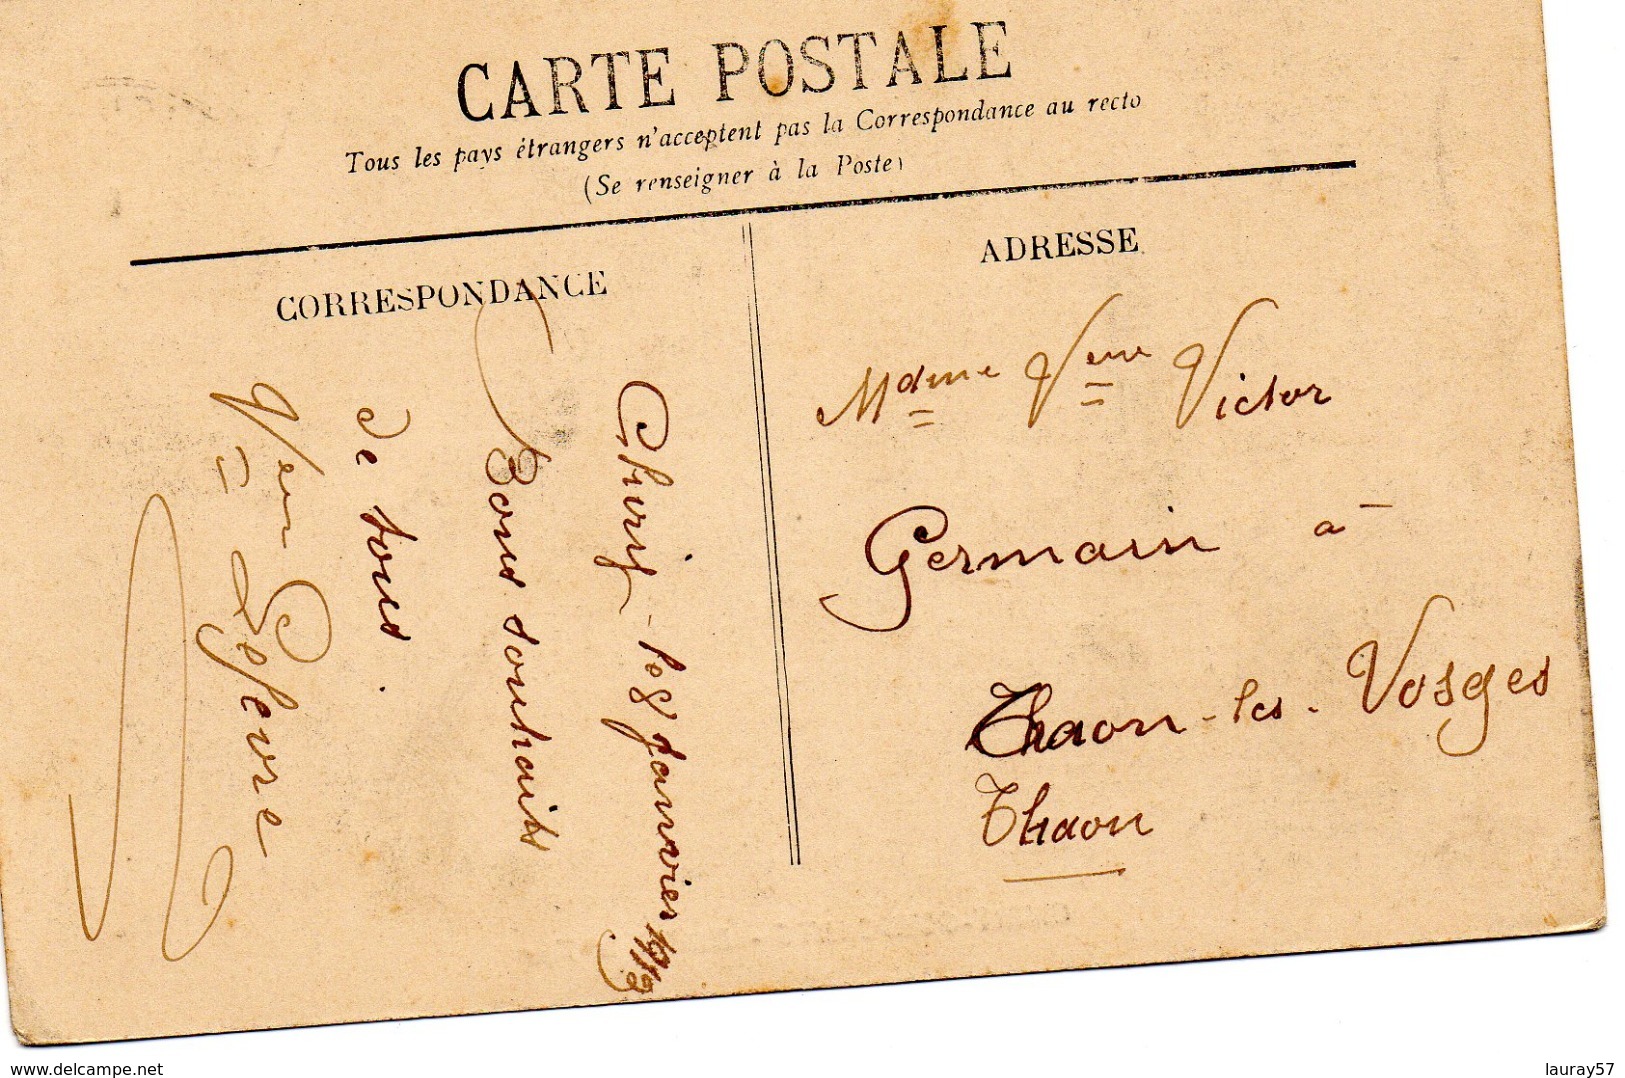 CARTE POSTALE
Tous les pays étrangers n'acceptent pas la Correspondance au recto
(Se renseigner à la Poste)
CORRESPONDANCE
janvier
Bons souhaits
de tous.
Veuve Lefevre
ADRESSE
Mdme Veuve Victor
Germain à
Thaon-les-Vosges
Thaon
www.delcampe.net
lauray57